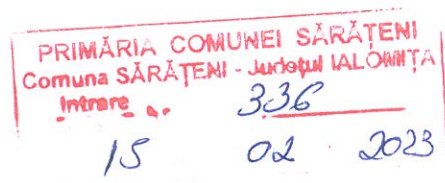 PRIMĂRIA COMUNEI SĂRĂŢENI
Comuna SĂRĂŢENI - Judeţul IALOMIŢA
Intrare 336
15 02 2023